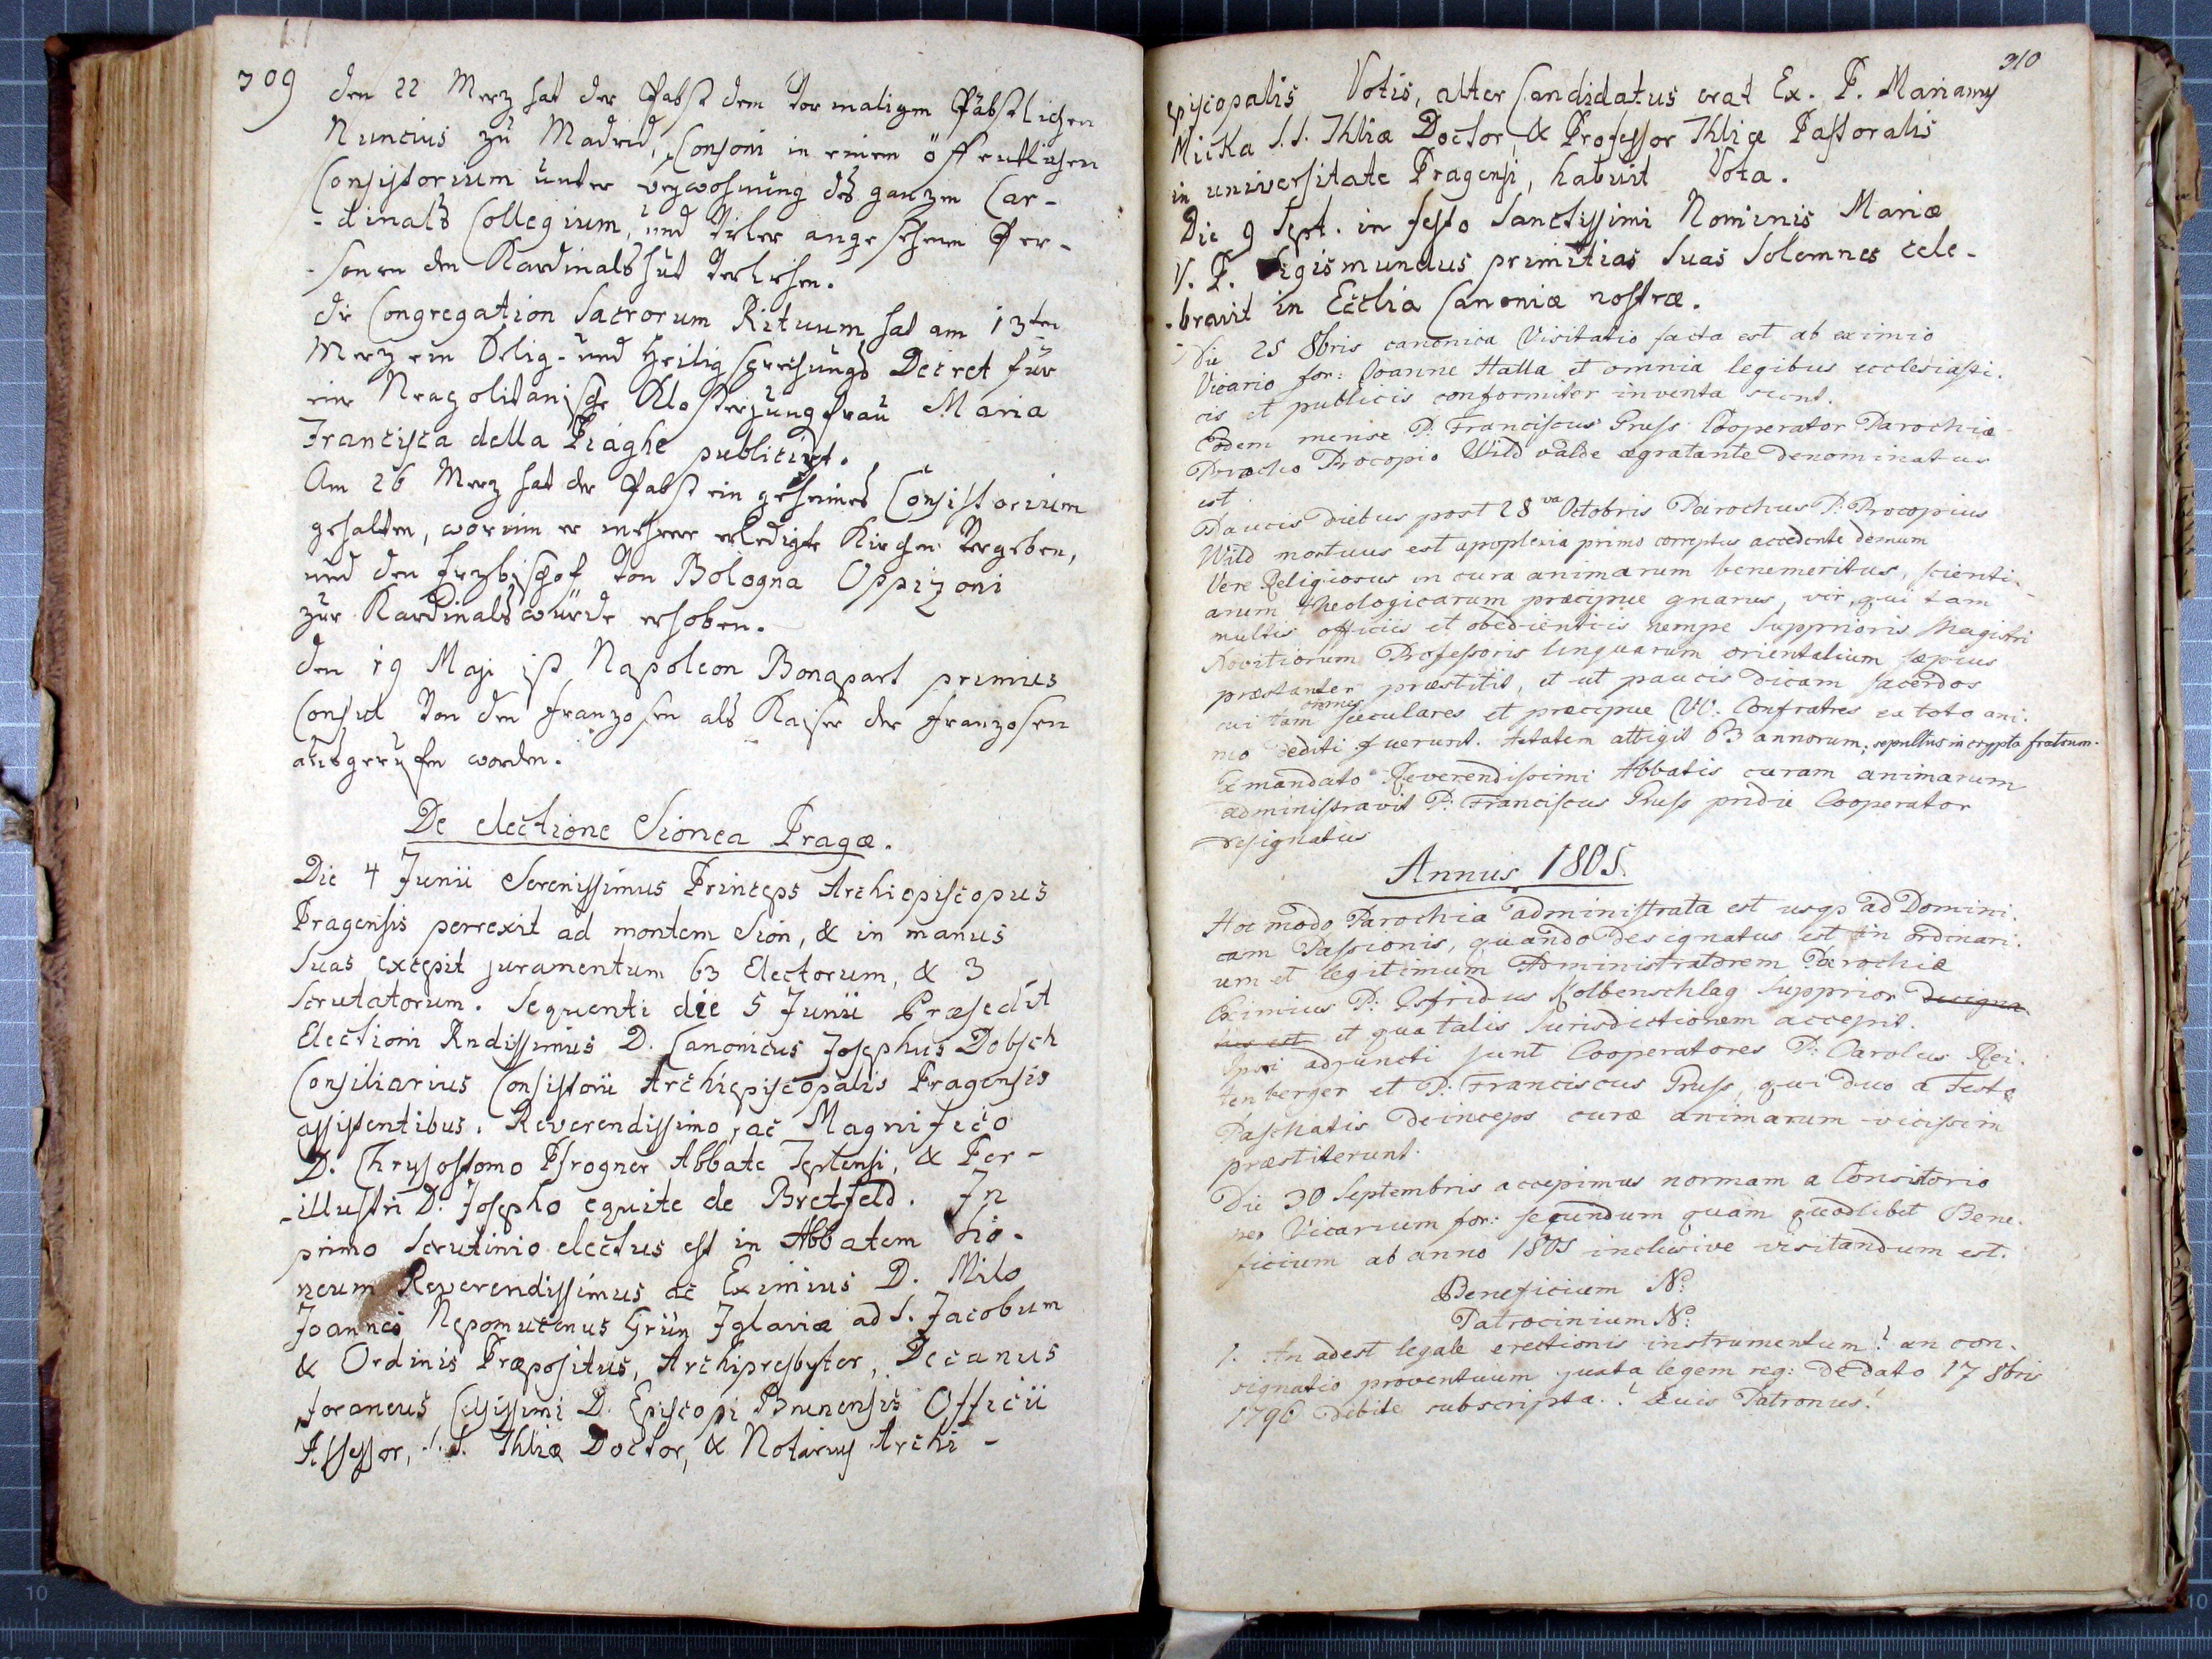 309
den 22 Merz hat der Pabst dem vormaligen Päbstlichen
Nuncius zu Madrid, Consoni in einem öffentlichen
Consistorium unter beywohnung des ganzen Car-
-dinals Collegium, und vieler angesehenen Per-
-sonen den Kardinalshut verliehen.
die Congregation Sacrorum Rituum hat am 13ten
Merz ein Selig- und Heiligsprechungs Decret für
eine Neapolitanische Klosterjungfrau Maria
Francisca della Piaghe publicirt.
Am 26 Merz hat der Pabst ein geheimes Consistorium
gehalten, worinn er mehrere erledigte Kirchen vergeben,
und den Erzbischof von Bologna Oppizoni
zur Kardinalswürde erhoben.
den 19 Maji ist Napoleon Bonapart primus
Consul von den Franzosen als Kaiser der Franzosen
ausgerufen worden.
De electione Sionea Pragæ.
Die 4 Junii Serenissimus Princeps Archiepiscopus
Pragensis perrexit ad montem Sion, & in manus
Suas excepit juramentum 63 Electorum, & 3
Scrutatorum. Sequenti die 5 Junii Præsedit
Electioni Rndissimus D. Canonicus Josephus Dobsch
Consiliarius Consistorii Archiepiscopalis Pragensis
assistentibus. Reverendissimo, ac Magnifico
D. Chrysostomo Pfrogner Abbate Teplensi, & Per-
-illustri D. Josepho equite de Bretfeld. In
primo Scrutinio electus est in Abbatem Sio-
neum Reverendissimus ac Eximius D. Milo
Joannes Nepomucenus Grün Iglaviæ ad S. Jacobum
& Ordinis Præpositus, Archipresbyter, Decanus
foraneus Celsissimi D. Episcopi Brunensis Officii
Assessor, S. S. Thliæ Doctor, & Notarius Archi-
310
episcopalis Votis, alter Candidatus erat Ex. P. Marianus
Mika S. S. Thliæ Doctor, & Professor Thliæ Pastoralis
in universitate Pragensi, habuit Vota.
Die 9 Sept. in festo Sanctissimi Nominis Mariæ
V. P. Sigismundus primitias Suas Solemnes cele-
-bravit in Ecclia Canoniæ nostræ.
Die 25 8bris canonica Visitatio facta est ab eximio
Vicario for: Joanne Halla et omnia legibus ecclesiasti-
cis et publicis conformiter inventa sunt.
Eodem mense P: Franciscus Gruss Cooperator Parochiæ
Parocho Procopio Wild valde ægrotante denominatus
est.
Paucis diebus post 28va Octobris Parochus P: Procopius
Wild mortuus est apoplexia primo correptus accedente demum
Vere Religiosus in cura animarum benemeritus, scienti-
arum theologicarum præcipue gnarus, vir, qui tam
multis officiis et obedientiis nempe Supprioris Magistri
Novitiorum Professoris linguarum orientalium sæpius
præstanter præstitit, et ut paucis dicam sacerdos
cui tam omnes sæculares et præcipue VV. Confratres ex toto ani-
mo dediti fuerunt. Ætatem attigit 63 annorum; sepultus in crypta fratrum.
Ex mandato Reverendissimi Abbatis curam animarum
administravit P: Franciscus Gruss pridie Cooperator
designatus
Annus 1805.
Hoc modo Parochia administrata est usq ad Domini-
cam Passionis, quando designatus est in ordinari-
um et legitimum Administratorem Parochiæ
Eximius P: Gsfridus Kolbenschlag Supprior designa-
tus est et qua talis Jurisdictionem accepit.
Ipsi adjuncti sunt Cooperatores P: Carolus Rei-
tenberger et P: Franciscus Gruss, qui duo a Festo
Paschatis deinceps curæ animarum vicissim
præstiterunt.
Die 30 Septembris accepimus normam a Consistorio
per Vicarium for: secundum quam quodlibet Bene-
ficium ab anno 1805 inclusive visitandum est.
Beneficium No:
Patrocinium No:
1. An adest legale erectionis instrumentum? an con-
signatio proventuum juxta legem reg: de dato 17 8bris
1796 debite subscripta.? Quis Patronus?